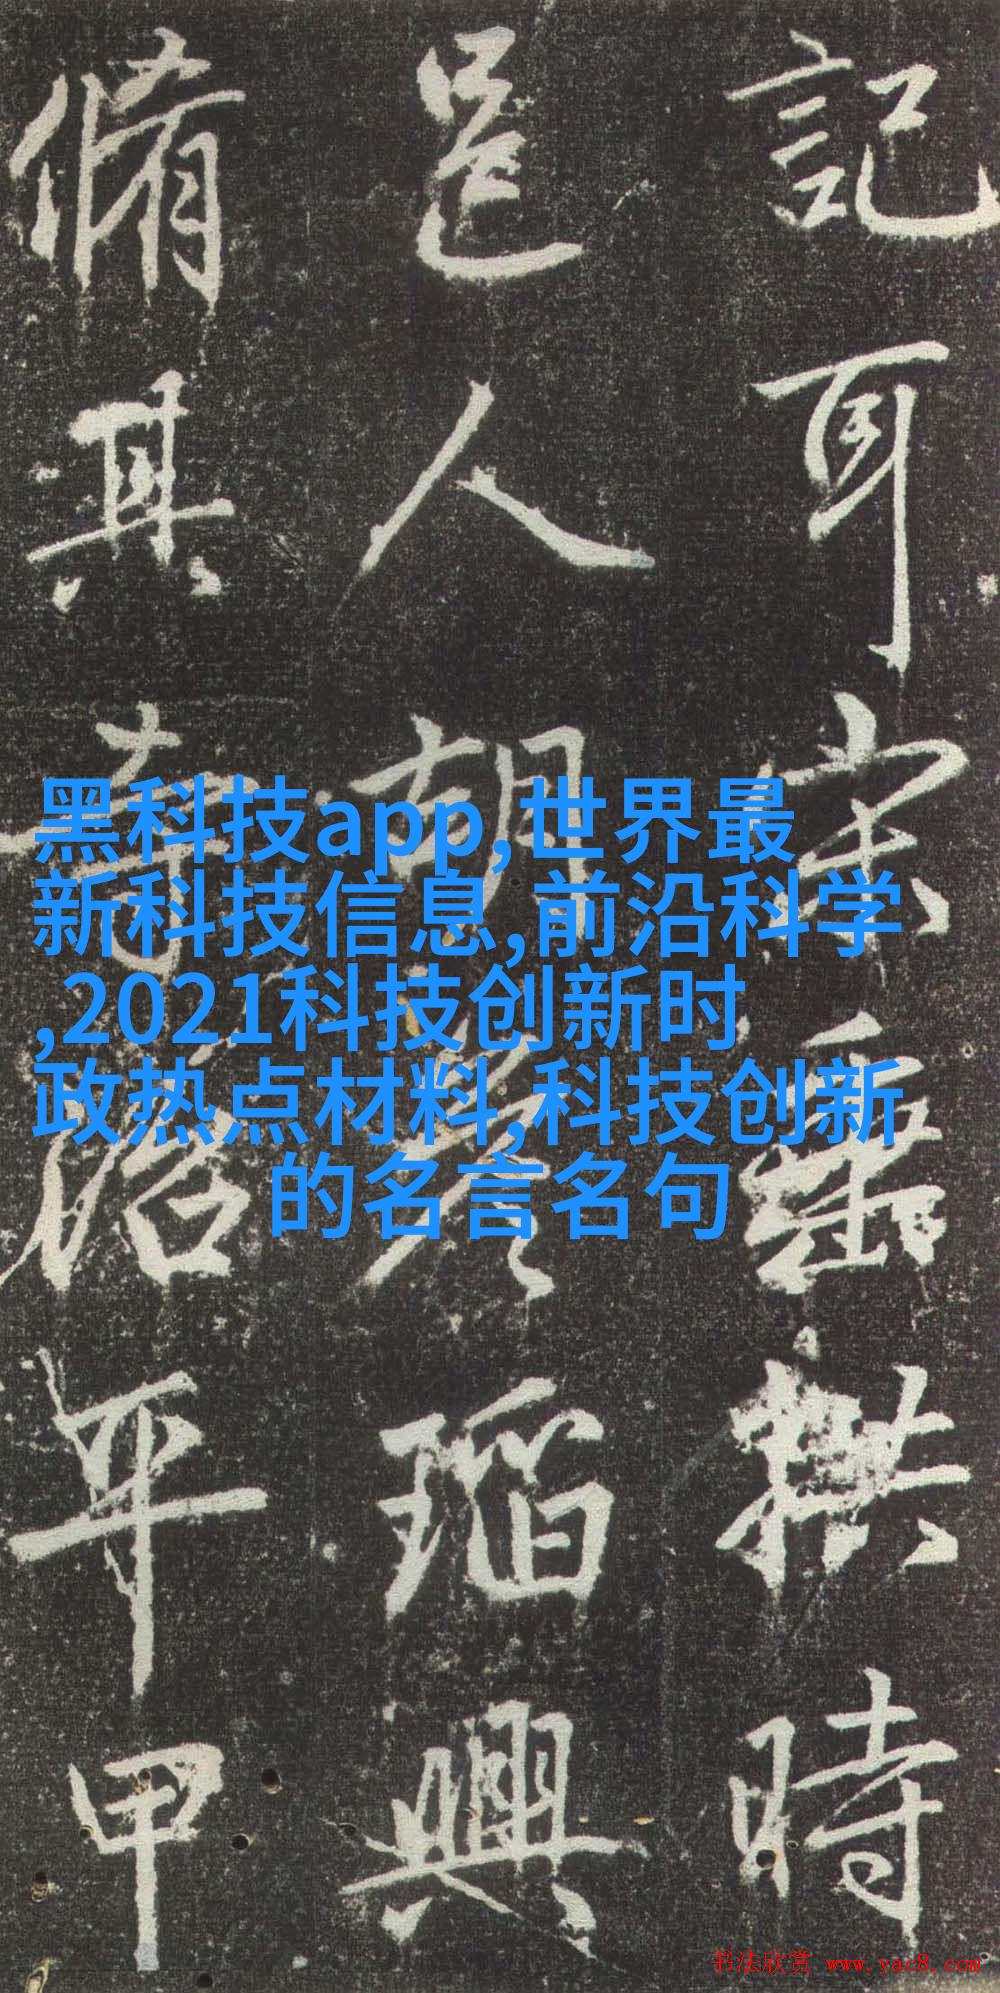 記耳宗垂拱時
邑人胡瑫興
脩其平甲
黑科技app,世界最
新科技信息,前沿科学
,2021科技创新时
政热点材料,科技创新
的名言名句
书法欣赏 www.yac8.com